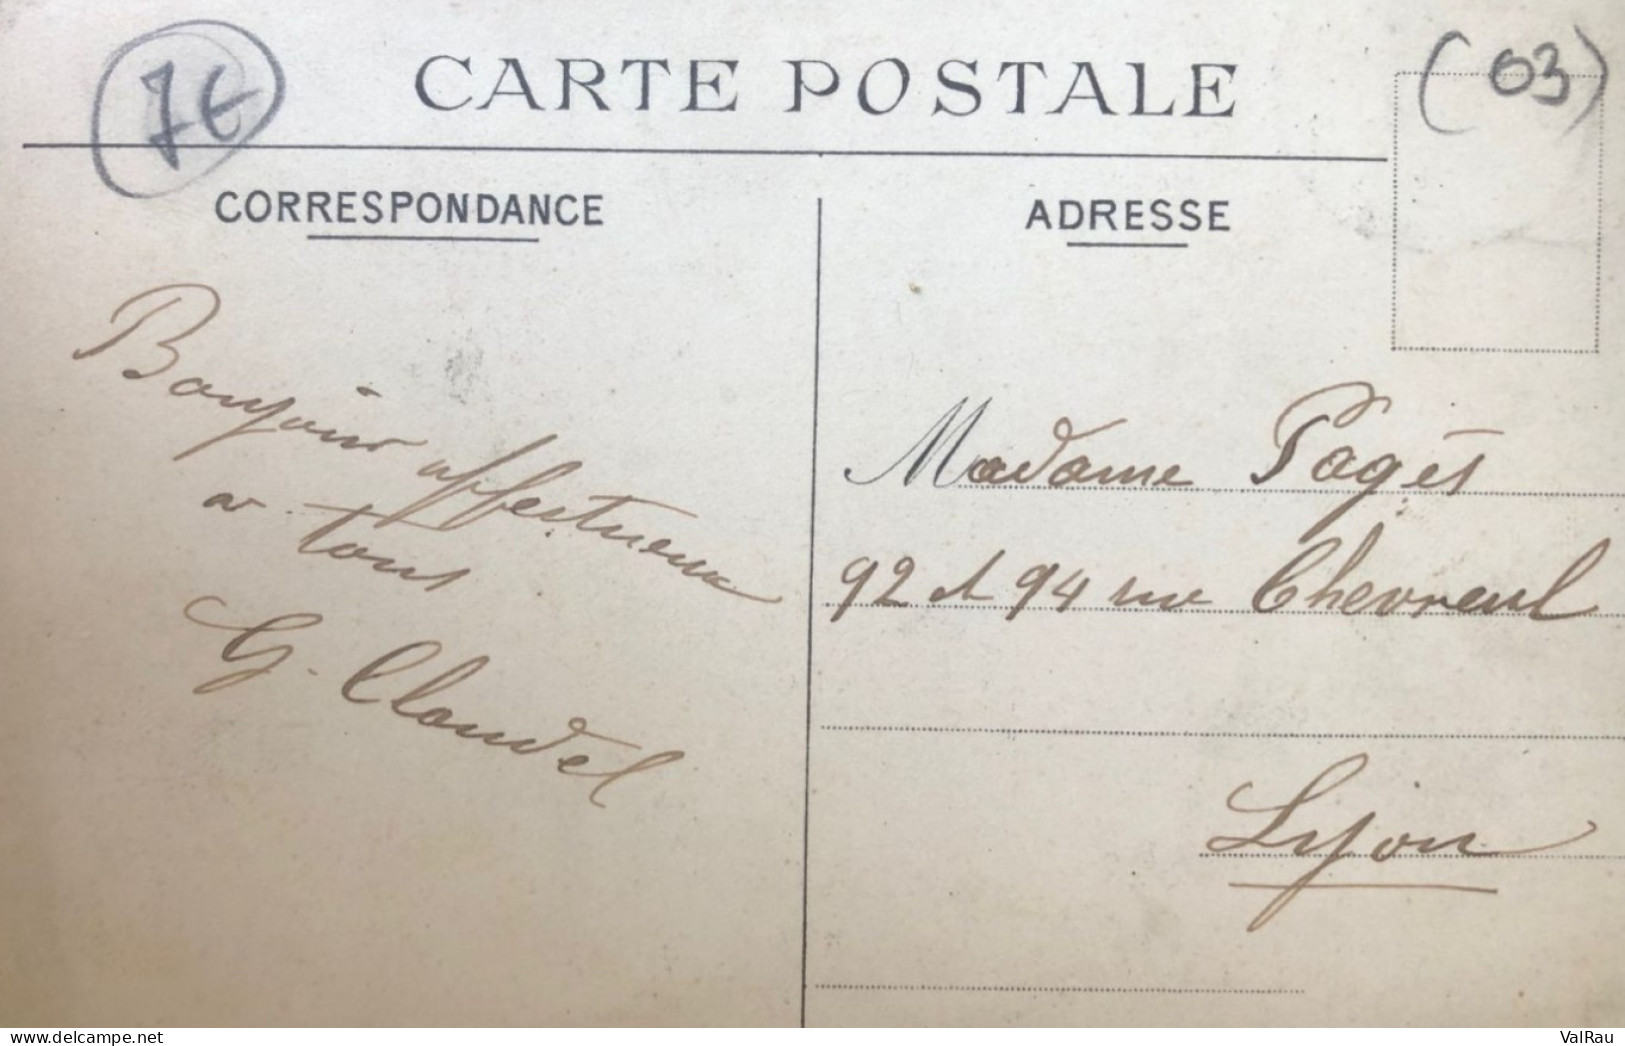 7€
CARTE POSTALE
(03)
CORRESPONDANCE
Bonjour affectueux
a tous
G. Claudel
ADRESSE
Madame Pagès
92 et 94 rue Chevreul
Lyon
www.delcampe.net
ValRau